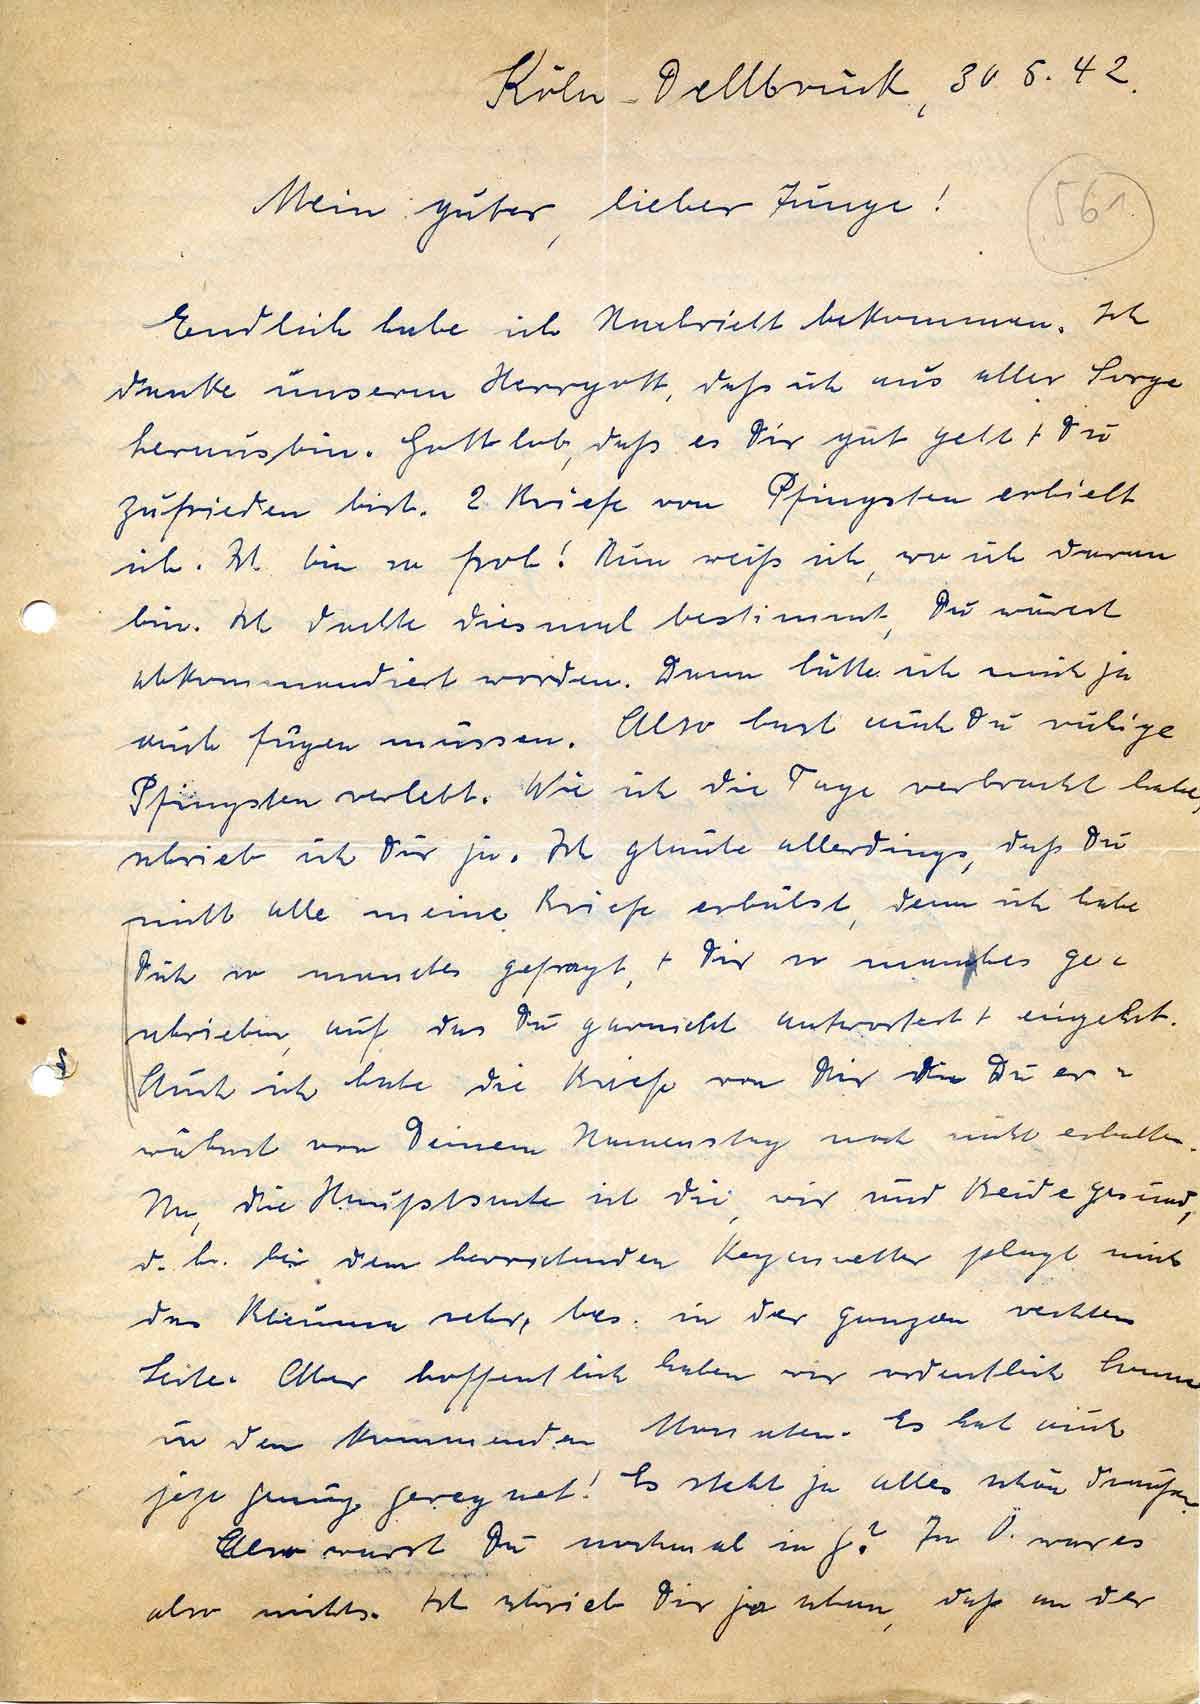 Köln-Dellbrück, 30 5. 42.
561
Mein guter, lieber Junge!
Endlich habe ich Nachricht bekommen. Ich
danke unserem Herrgott, daß ich aus aller Sorge
herausbin. Gottlob, daß es Dir gut geht + Du
zufrieden bist. 2 Briefe von Pfingsten erhielt
ich. Ich bin so froh! Nun weiß ich, wo ich daran
bin. Ich dachte diesmal bestimmt, Du wärest
abkommandiert worden. Dann hätte ich mich ja
auch fügen müssen. Also hast auch Du ruhige
Pfingsten verlebt. Wie ich die Tage verbracht habe,
schrieb ich Dir ja. Ich glaube allerdings, daß Du
nicht alle meine Briefe erhälst, denn ich habe
Dich so manches gefragt, + Dir so manches ge-
schrieben, auf das Du garnicht antwortest + eingehst.
Auch ich habe die Briefe von Dir die Du er-
wähnst von Deinem Namenstag noch nicht erhalten.
Na, die Hauptsache ist die, wir sind Beide gesund,
d. h. bei dem herrschenden Regenwetter plagt mich
das Rheuma sehr, bes. in der ganzen rechten
Seite. Aber hoffentlich haben wir ordentlich Sonne
in den kommenden Monaten. Es hat auch
jetzt genug geregnet! Es steht ja alles schön draußen.
Also warst Du nochmal in G? In Ö. war es
also nichts. Ich schrieb Dir ja schon, daß an der